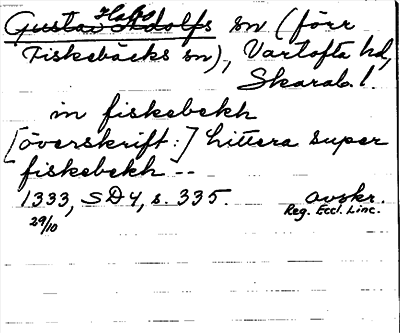 Habo
Gustav Adolfs sn (förr
Fiskebäcks sn), Vartofta hd,
Skarab. l.
in fiskebekh
[överskrift:] littera super
fiskebekh --
1333, SD4, s. 335. avskr.
29/10 Reg. Eccl. Linc.